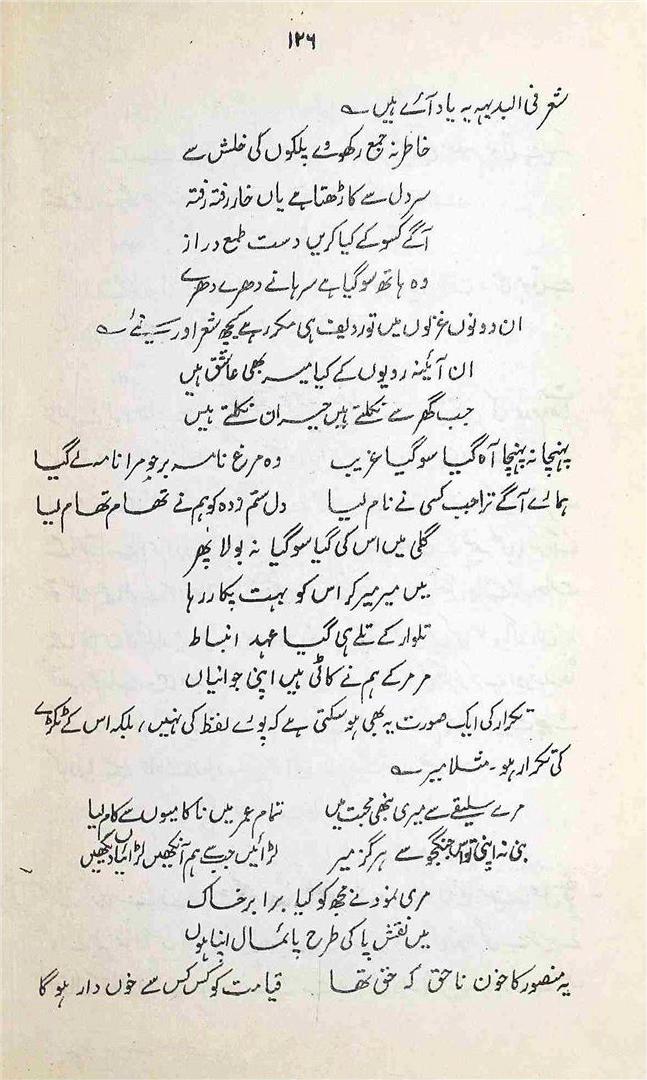 ۱۲۶
شعر فی البدیہہ یہ یاد آئے ہیں ؎
خاطر نہ جمع رکھوے پلکوں کی خلش سے
سر دل سے کاڑھتا ہے یاں خار رفتہ رفتہ
آگے کسو کے کیا کریں دست طمع دراز
وہ ہاتھ سو گیا ہے سرہانے دھرے دھرے
ان دونوں غزلوں میں تو ردیف ہی مکرر ہے کچھ شعر اور سنیئے ؎
ان آئینہ رویوں کے کیا میر بھی عاشق ہیں
جب گھر سے نکلتے ہیں حیران نکلتے ہیں
پہنچا نہ پہنچا آہ گیا سو گیا غریب وہ مرغ نامہ بر جو مرا نامہ لے گیا
ہمارے آگے ترا جب کسی نے نام لیا دل ستم زدہ کو ہم نے تھام تھام لیا
گلی میں اس کی گیا سو گیا نہ بولا پھر
میں میر میر کر اس کو بہت پکار رہا
تلوار کے تلے ہی گیا عہد انبساط
مر مر کے ہم نے کاٹی ہیں اپنی جوانیاں
تکرار کی ایک صورت یہ بھی ہو سکتی ہے کہ پورے لفظ کی نہیں، بلکہ اس کے ٹکڑے
کی تکرار ہو۔ مثلا میر ؎
مرے سلیقے سے میری نبھی محبت میں تمام عمر میں ناکامیوں سے کام لیا
بنی نہ اپنی تو اس جنگجو سے ہرگز میر لڑائیں جب سے ہم آنکھیں لڑائیاں دیکھیں
مری نمود نے مجھ کو کیا برابر خاک
میں نقش پا کی طرح پائمال اپنا ہوں
یہ منصور کا خون ناحق کہ حق تھا قیامت کو کس کس سے خوں دار ہوگا